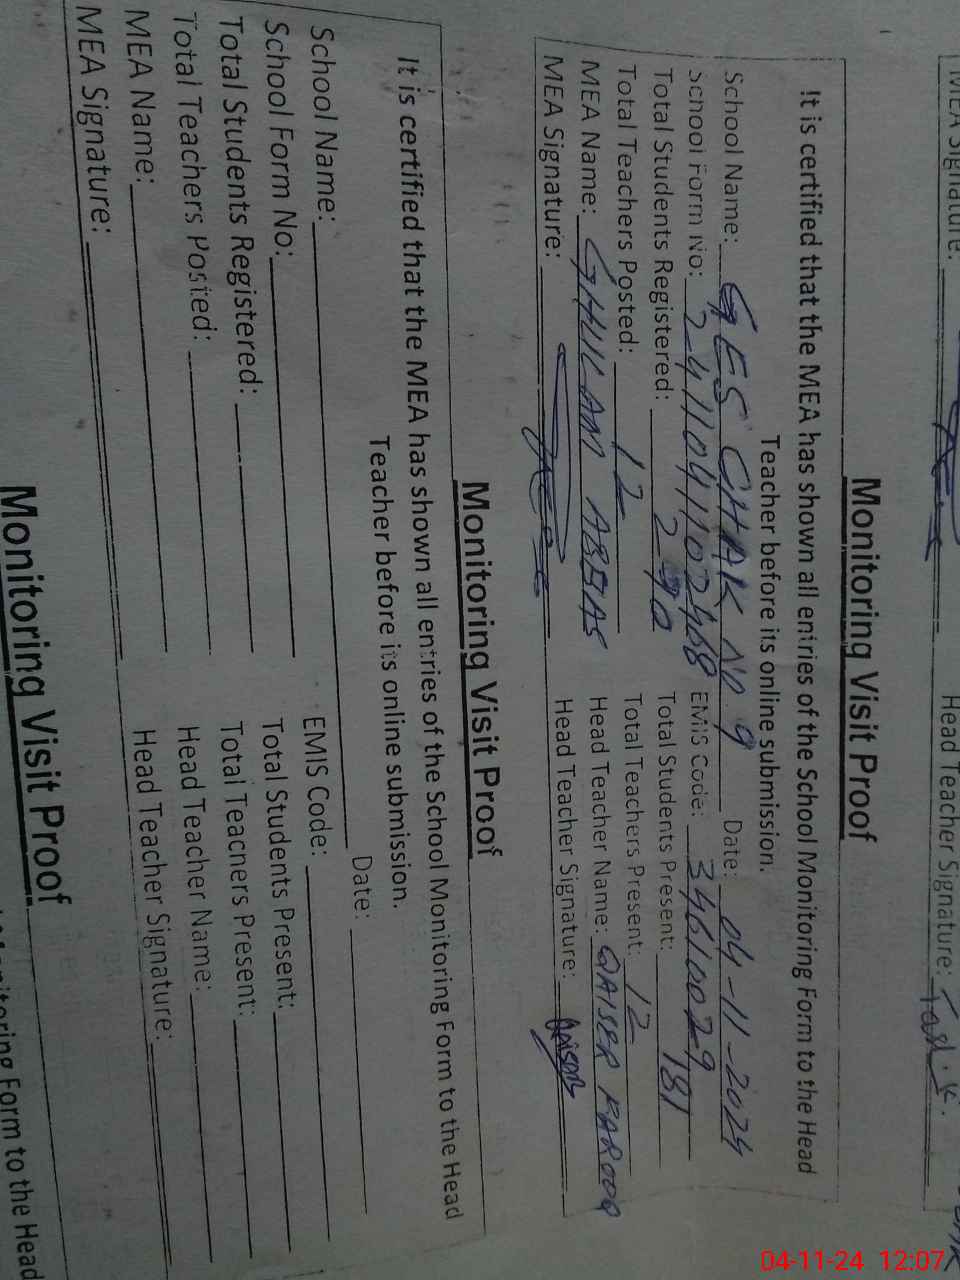 MEA Signature:
Head Teacher Signature:
Monitoring Visit Proof
It is certified that the MEA has shown all entries of the School Monitoring Form to the Head
Teacher before its online submission.
School Name: GES CHAK NO. 9 Date: 04-11-2024
School Form No: EMIS Code: 34610029
Total Students Registered: 290 Total Students Present: 181
Total Teachers Posted: 12 Total Teachers Present: 12
MEA Name: GHULAM ABBAS Head Teacher Name: QAISER FAROOQ
MEA Signature: Head Teacher Signature:
Monitoring Visit Proof
It is certified that the MEA has shown all entries of the School Monitoring Form to the Head
Teacher before its online submission.
School Name: Date:
School Form No: EMIS Code:
Total Students Registered: Total Students Present:
Total Teachers Posted: Total Teachers Present:
MEA Name: Head Teacher Name:
MEA Signature: Head Teacher Signature:
Monitoring Visit Proof
Monitoring Form to the Head
04-11-24 12:07